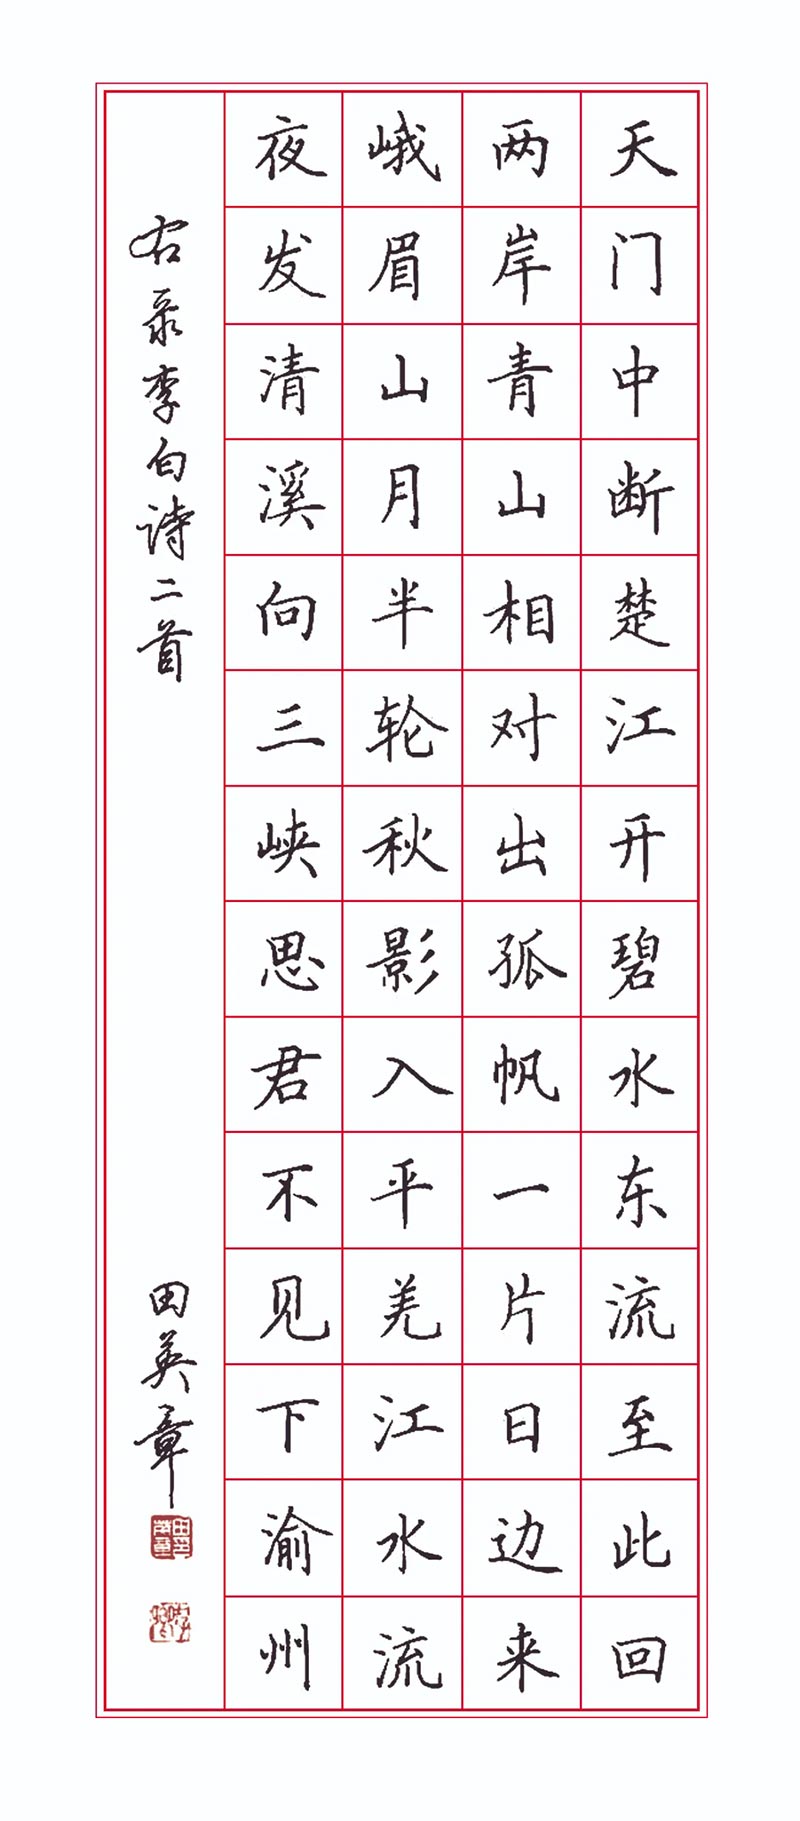 天门中断楚江开碧水东流至此回
两岸青山相对出孤帆一片日边来
峨眉山月半轮秋影入平羌江水流
夜发清溪向三峡思君不见下渝州
右录李白诗二首
田英章